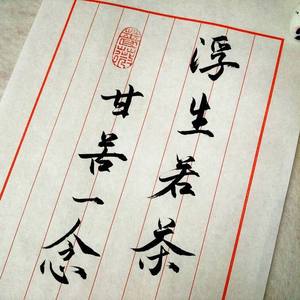 浮生若茶
甘苦一念